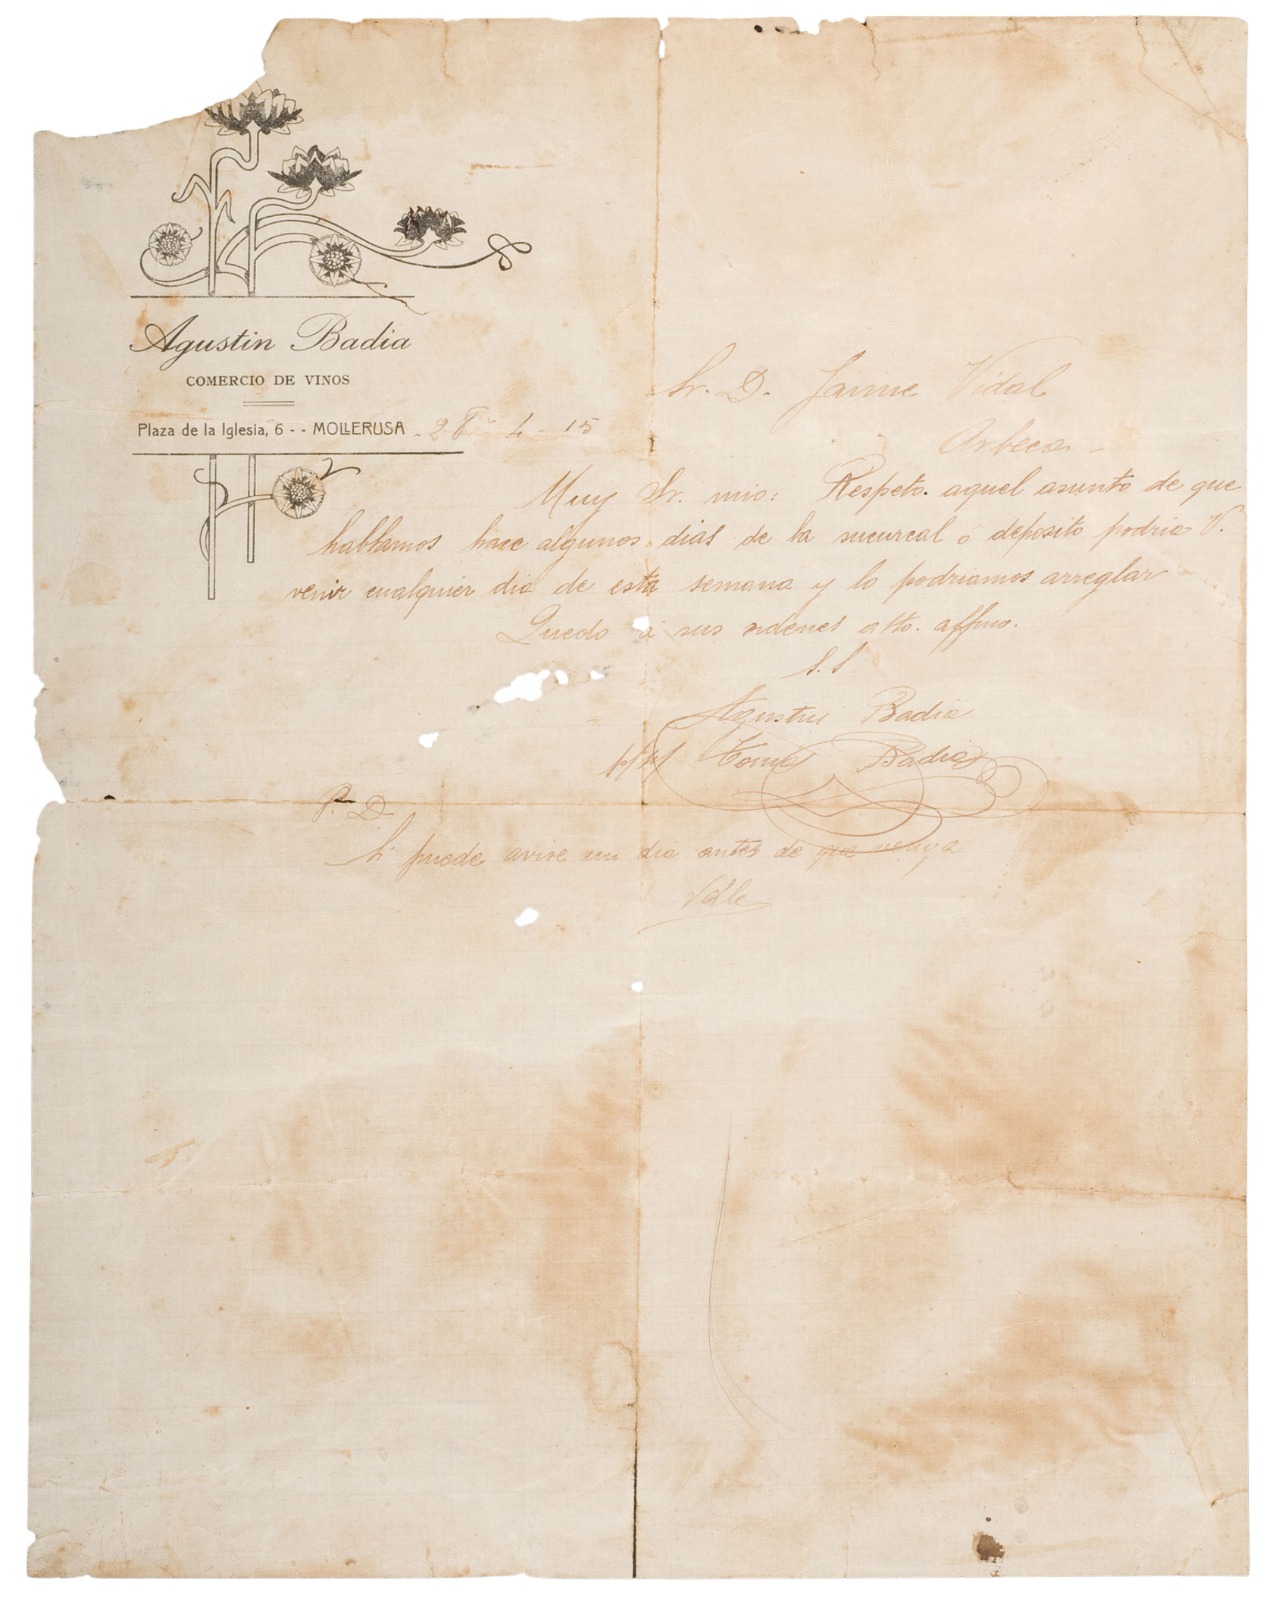 Agustin Badia
COMERCIO DE VINOS
Plaza de la Iglesia, 6 - - MOLLERUSA - 28 - 4 - 15
Sr. D. Jaime Vidal
Arbeca -
Muy Sr. mio: Respeto. aquel asunto de que
hablamos hace algunos dias de la sucursal ó deposito podria V.
venir cualquier dia de esta semana y lo podriamos arreglar
Quedo á sus ordenes atto. affmo.
S. S.
Agustin Badia
p/p/ Badia
P. D.
Si puede avise un dia antes de que venga
Vale